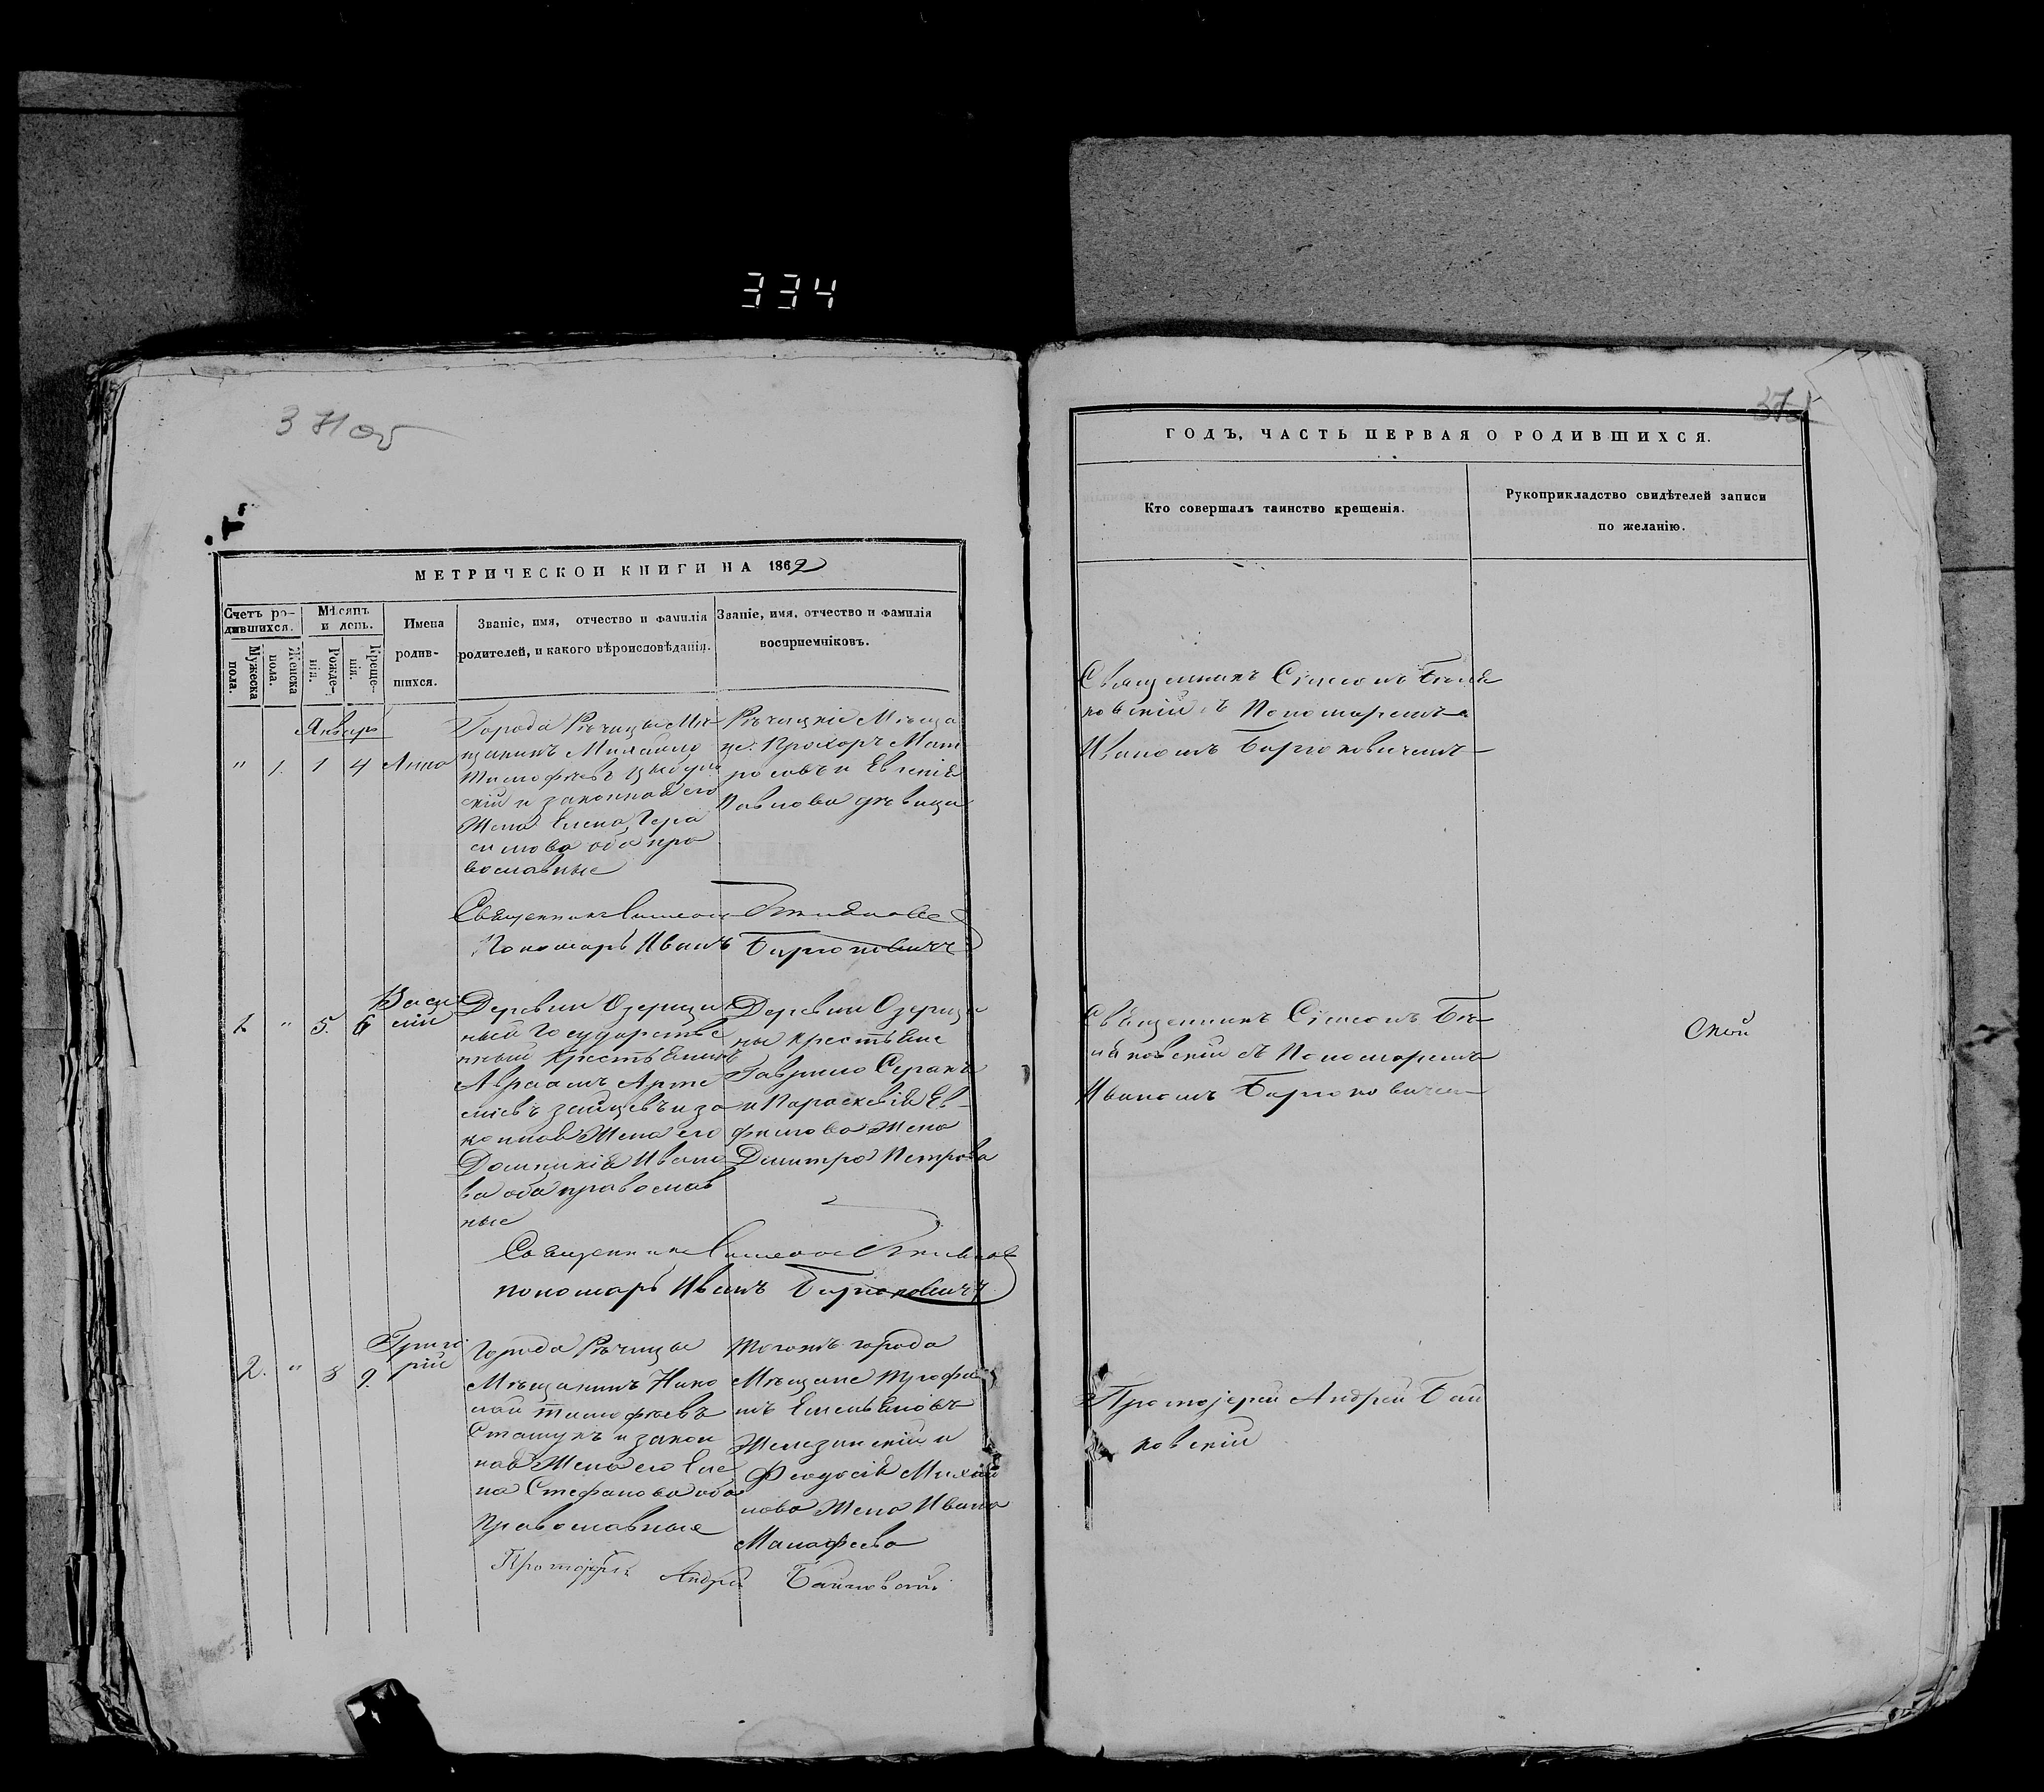 334
371 об
МЕТРИЧЕСКОЙ КНИГИ НА 1869
Счетъ ро-
дившихся.
Мѣсяцъ
и день.
Мужеска
пола.
Женска
пола.
Рожде-
нія.
Креще-
нія.
Имена
родив-
шихся.
Званіе, имя, отчество и фамилія
родителей, и какого вѣроисповѣданія.
Званіе, имя, отчество и фамилія
воспріемниковъ.
Январь
" 1. 1 4 Анна
Города Рѣчицы Мѣ
щанинъ Михайло
Тимофѣевъ
скій и законная его
Жена Елена Гера
симова оба пра
вославные
Рѣчицкіе Мѣща
не: Прохоръ Мат
росовъ и Евгенія
Павлова дѣвица
Священникъ Симеонъ
Пономарь Иванъ Бирюковичъ
1 " 5. 6
Васи
лій
Деревни Озерщи
ный Государстве
нный Крестьянинъ
Авраамъ Арте
міевъ Зайцевъ и за
конная Жена его
Домникія Ивано
ва оба православ
ные
Деревни Озерщи
ны Крестьяне
Гаврило
и Параскевія Ев
фимова Жена
Дмитра Петрова
Священникъ Симеонъ
пономарь Иванъ Бирюковичъ
2. " 8 9.
Григо
рій
Города Рѣчицы
Мѣщанинъ Нико
лай Тимофѣевъ
Сташукъ и закон
ная Жена его Еле
на Стефанова оба
Православные
Тогожъ города
Мѣщане Трофи
мъ Емельяновъ
Железинскій и
Феодосія Михай
лова Жена Ивана
Малафеева
Протоіерей Андрей Баиковскій
ГОДЪ, ЧАСТЬ ПЕРВАЯ О РОДИВШИХСЯ.
Кто совершалъ таинство крещенія.
Рукоприкладство свидѣтелей записи
по желанію.
Священникъ Сімеонъ
новскій съ Пономаремъ
Иваномъ Бирюковичемъ
Священникъ Сімеонъ
новскій съ Пономаремъ
Иваномъ Бирюковичем
Протоіерей Андрей Баи
ковскій